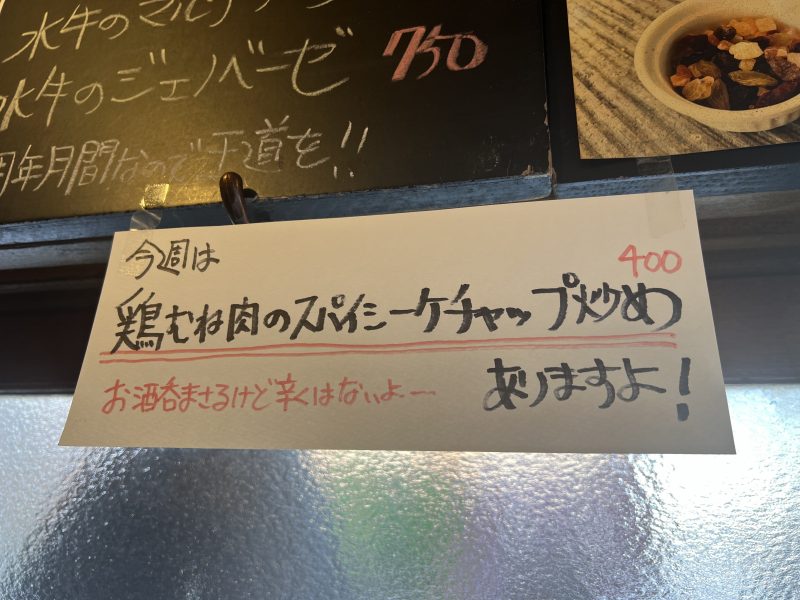 水牛のマルゲリ
水牛のジェノベーゼ 750
周年月間なので王道を!!
今週は
400
鶏むね肉のスパイシーケチャップ炒め
お酒呑まさるけど辛くはないよー
ありますよ!